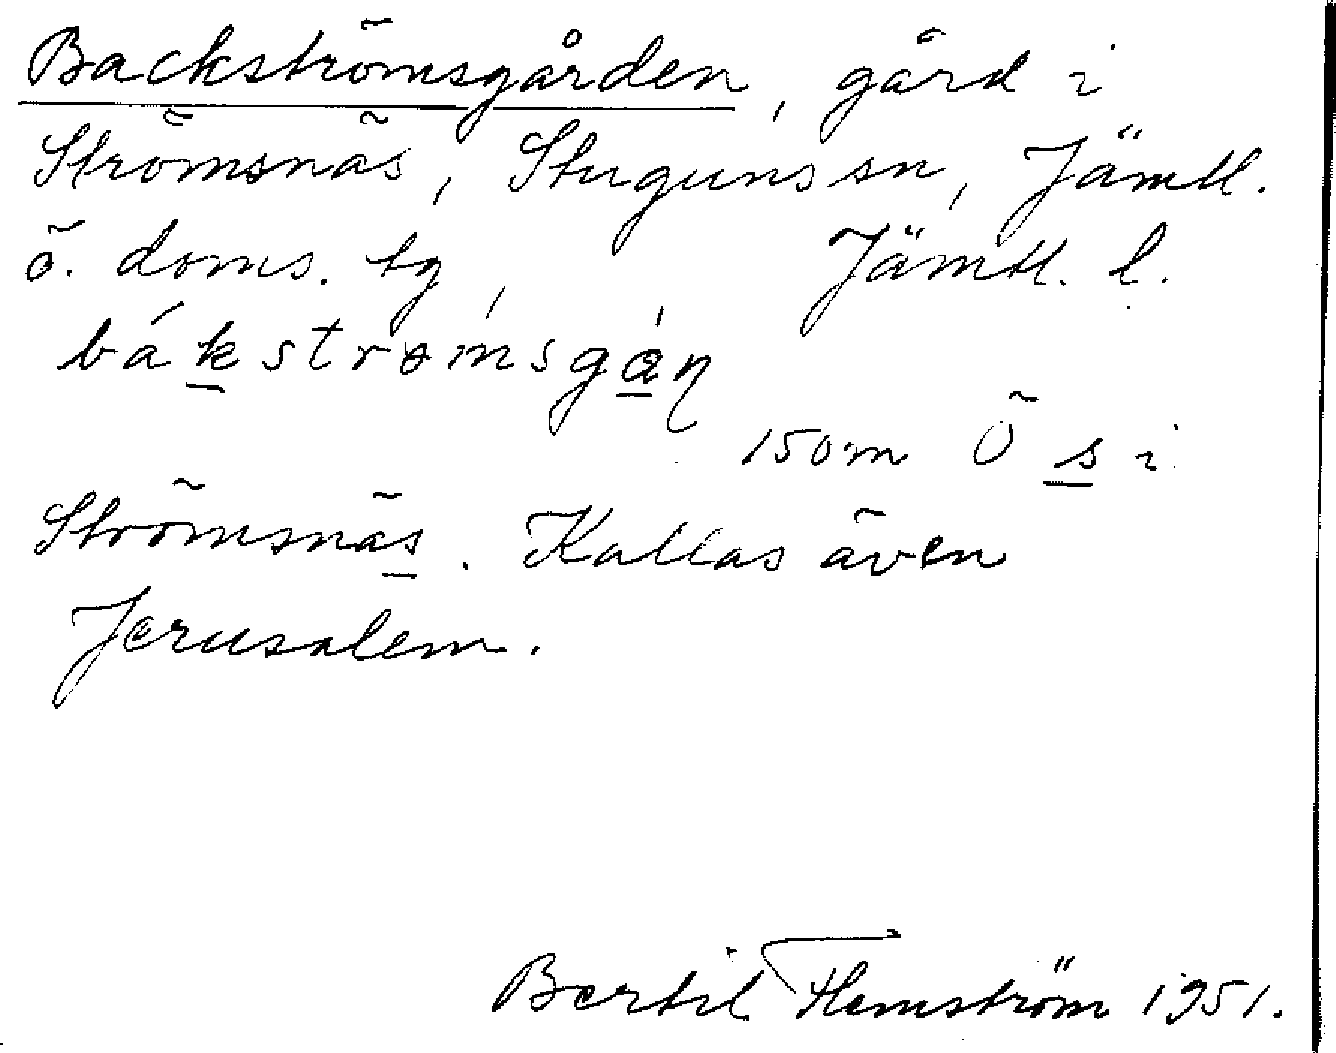 Backströmsgården, gård i
Strömsnäs, Stuguns sn, Jämtl.
ö. doms. tg, Jämtl. l.
bákstrømsgáɳ
150 m Ö s i
Strömsnäs. Kallas även
Jerusalem.
Bertil Flemström 1951.